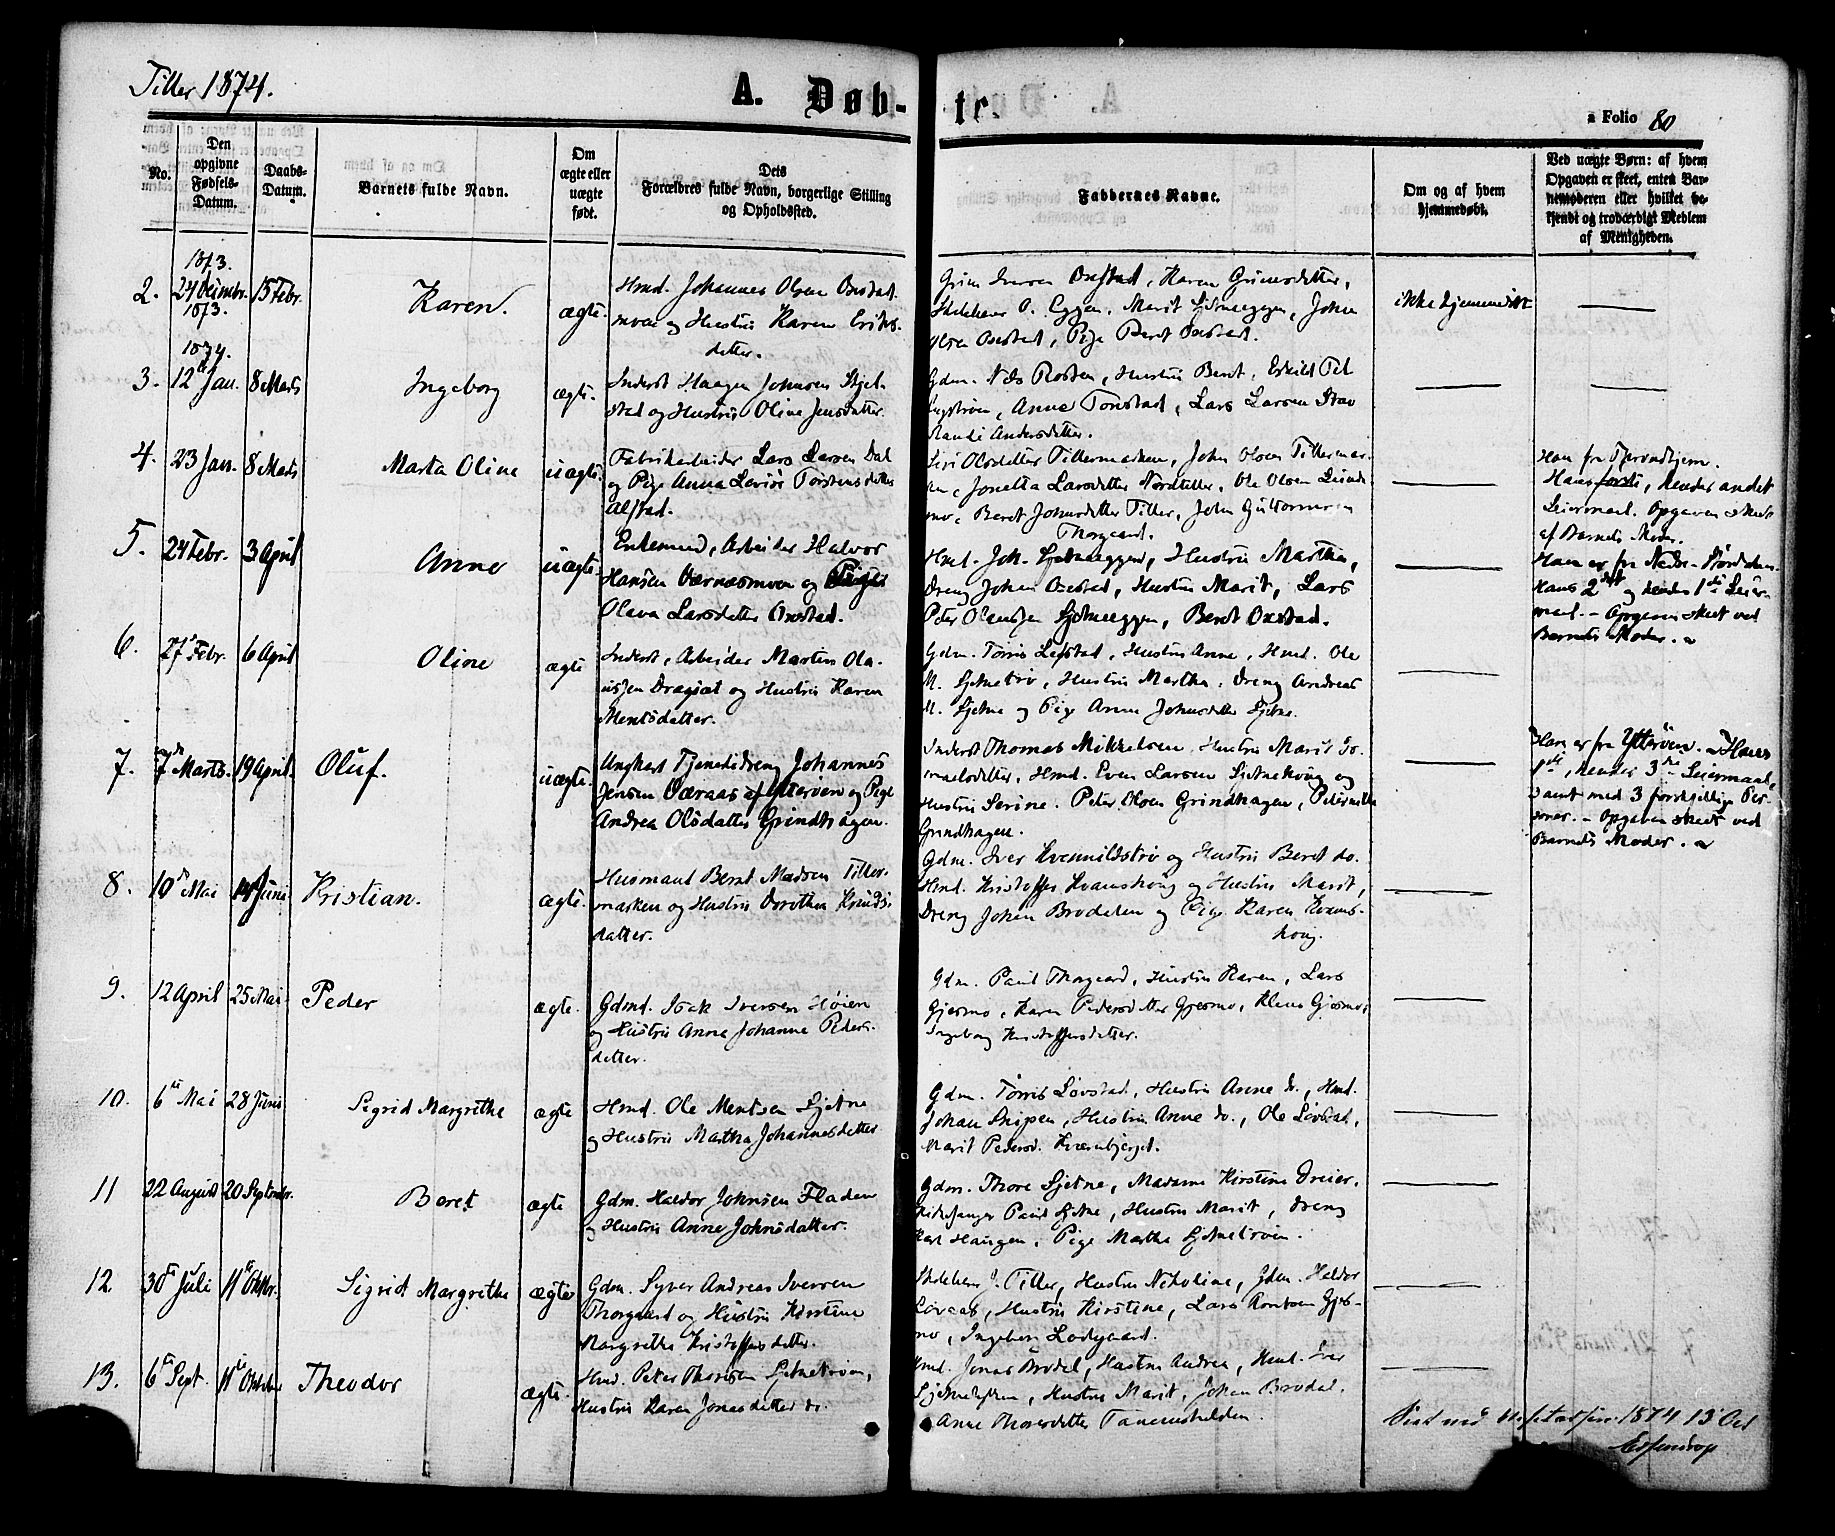 Tiller 1874.
A. Døb-
te.
a Folio 80
No.
Den
opgivne
Fødsels-
Datum.
Daabs-
Datum.
Barnets fulde Navn.
Om
ægte eller
uægte
født.
Dets
Forældres fulde Navn, borgerlige Stilling
og Opholdssted.
Faddernes Navne.
Om og af hvem
hjemmedøbt.
Ved uægte Børn: af hvem
Opgaven er skeet, enten Bar-
nemoderen eller hvilket be-
kjendt og troværdigt Medlem
af Menigheden.
1873.
2. 15 Febr. Karen. ægte.
1873.
Hmd. Johannes Olsen
og Hustru Karen Eriks-
detter.
Karen Grimsdetter,
O. Eggen, Marit, Johan
Olsen, Pige Beret
ikke hjemmedøbt
1874.
3. 12 Jan. 8 Marts Ingeborg ægte.
Inderst Haagen Johnsen Skjel-
stad og Hustru Oline Jensdatter.
Gdm. Nils Rosten, Hustru Beret, Eskild Til-
Anne Tonstad, Lars Larsen
Randi Andersdetter.
4. 23 Jan. 8 Marts Marta Oline uægte.
Fabrikarbeider Lars Larsen Dal
og Pige Anna Torstensdetter
Alstad.
Siri Olsdetter Tillermarken, John Olsen Tillermar-
ken, Jonetta Larsdetter Nordtiller, Ole Olsen
Beret Johnsdetter Tiller, John Guttormsen
Thorgaard.
Han fra Throndhjem.
Hans første, Hendes andet
Leiermaal. Opgaven skeet
af Barnets Moder.
5. 24 Febr. 3 April Anne uægte.
Enkemand, Arbeider Halvor
Hansen Værnesmoen og Pige
Olava Larsdetter
Hmd. Joh. Sjetneeggen, Hustru Martha,
Dreng Johan, Hustru Marit, Lars
Peter Olaussen Sjetneeggen, Beret
Han er fra Nedre
Hans 2det og hendes 1ste Leier-
maal. - Opgaven skeet ved
Barnets Moder.
6. 27 Febr. 6 April Oline ægte
Inderst, Arbeider Morten Ola-
ussen og Hustru Karen
Mentsdetter.
Gdm. Tørris, Hustru Anne, Hmd. Ole
M. Sjetne, Hustru Martha, Dreng Andreas
M. Sjetne og Pige Anne Johnsdetter Sjetne.
7. 7de Marts. 19 April. Oluf. uægte.
Ungkarl Tjenestedreng Johannes
Jensen Væraas af Ytterøen og Pige
Andrea Olsdatter Grindhaugen.
Inderst Thomas Mikkelsen, Hustru Marit
Hmd. Even Larsen Sjetnehaug og
Hustru Serine. Peter Grindhagen, Peternelle
Grindhagen.
Han er fra Ytterøen. Hans
1ste, hendes 3die Leiermaal,
samt med 3 forskjellige Per-
soner. - Opgaven skeet ved
Barnets Moder.
8. 10de Mai 14 Juni Kristian. ægte.
Husmand Bernt Madsen Tiller-
marken og Hustru Dorothea Knuds-
datter.
Gdm. Iver Kvenildstrø og Hustru Beret do.
Hmd. Kristoffer Kvamshoug og Hustru Marit,
Dreng Johan Brodalen og Pige Karen Kvams-
houg.
9. 12 April 25 Mai Peder ægte.
Gdmd. Isak Iversen Høien
og Hustru Anne Johanne Peders-
detter.
Gdm. Paul Thorgaard, Hustru Karen, Lars
Gjesmo, Karen Pedersdetter Gjesmo, Klaus Gjesmo,
Ingeborg Kristoffersdetter.
10. 6te Mai 28 Juni Sigrid Margrethe ægte
Hmd. Ole Mentsen Sjetne
og Hustru Martha Johannesdetter
Gdm. Tørris Løvstad, Hustru Anne do, Hmd.
Johan Snipen, Hustru Anne do., Ole Løvstad,
Marit Pedersd. Kværnbjerget.
11 22 August 20 September. Beret ægte
Gdm. Haldor Johnsen Fladen
og Hustru Anne Johnsdatter.
Gdm. Thore Sjetne, Madame Kirstine Dreier,
Kirkesanger Paul Sjetne, Hustru Marit, Dreng
Karl Haugen, Pige Martha Sjetnetrøen.
12. 30te Juli 11te Oktbr. Sigrid Margrethe ægte
Gdm. Syver Andreas Iversen
Thorgaard og Hustru Kirstine
Margrethe Kristoffersdetter.
J. Tiller, Hustru Nikoline, Gdm. Haldor
Løvaas, Hustru Kirstine, Lars Gjes-
mo, Ingebor Lodgaard.
13. 6te Sept. 11te Oktober Theodor ægte.
Hmd. Peter Thoresen Sjetnetrøen,
Hustru Karen Jonasdetter do.
Hmd. Jonas Brodal, Hustru Andrea, Hmd. Iver
Hustru Marit, Johan Brodal.
Anne Thoresdetter
1874 13 Oct
Essendrop